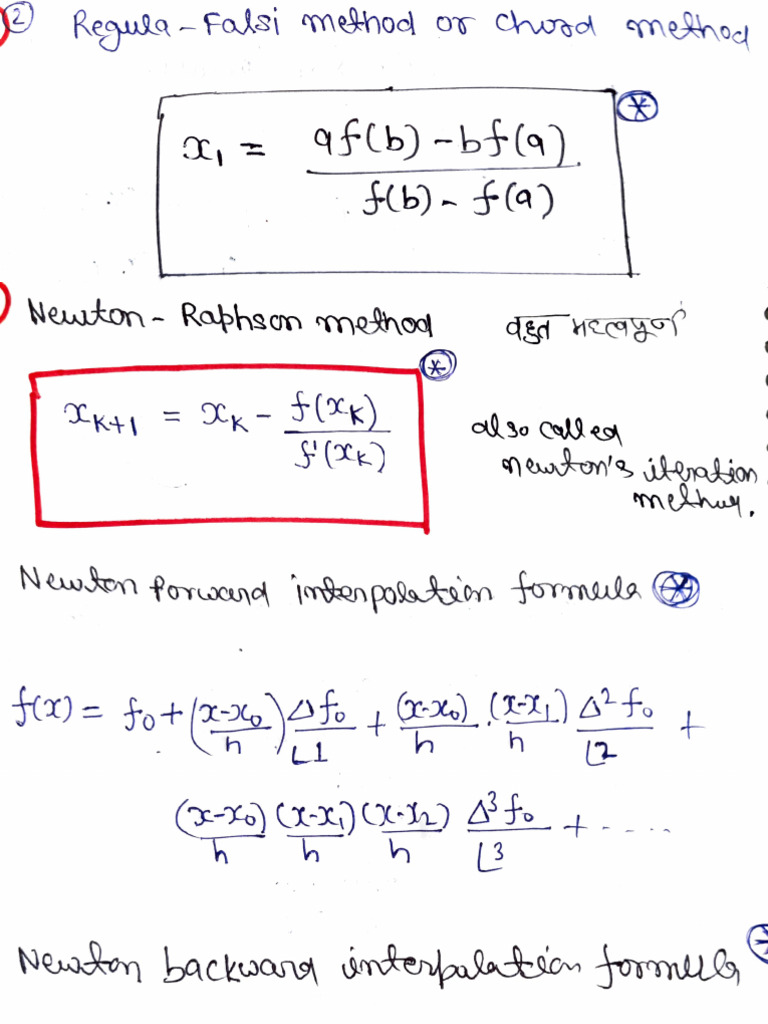 ② Regula-Falsi method or Chord method
x₁ = (af(b) - bf(a)) / (f(b) - f(a))
Newton-Raphson method बहुत महत्वपूर्ण
x_{K+1} = x_K - f(x_K) / f'(x_K)
also called
newton's iteration
Newton Forward interpolation formula
f(x) = f₀ + ((x-x₀)/h) Δf₀/⌊1 + (x-x₀)/h · (x-x₁)/h Δ²f₀/⌊2 +
(x-x₀)/h (x-x₁)/h (x-x₂)/h Δ³f₀/⌊3 + .....
Newton backward interpolation formula